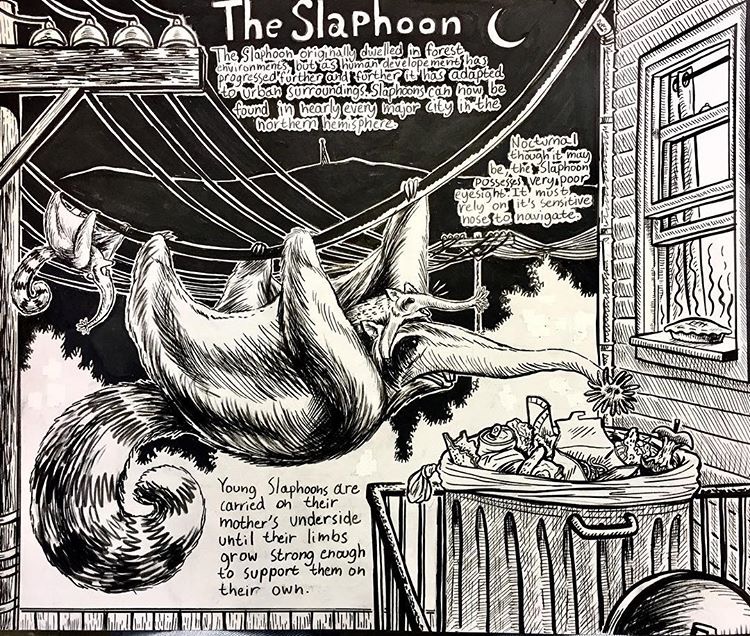 The Slaphoon
The Slaphoon originally dwelled in forest
environments, but as human developement has
progressed further and further it has adapted
to urban surroundings. Slaphoons can now be
found in nearly every major city in the
northern hemisphere.
Nocturnal
though it may
be, the Slaphoon
possesses very poor
eyesight. It must
rely on it's sensitive
nose to navigate.
Young Slaphoons are
carried on their
mother's underside
until their limbs
grow strong enough
to support them on
their own.